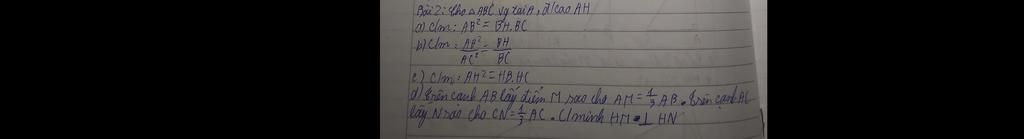 Bài 2: Cho △ABC vg tại A, đ/cao AH
a) C/m: AB² = BH.BC
b) C/m: AB²/AC² = BH/BC
c) C/m: AH² = HB.HC
d) Trên cạnh AB lấy điểm M sao cho AM = 1/3 AB. Trên cạnh AC
lấy N sao cho CN = 1/3 AC. C/minh HM ⊥ HN